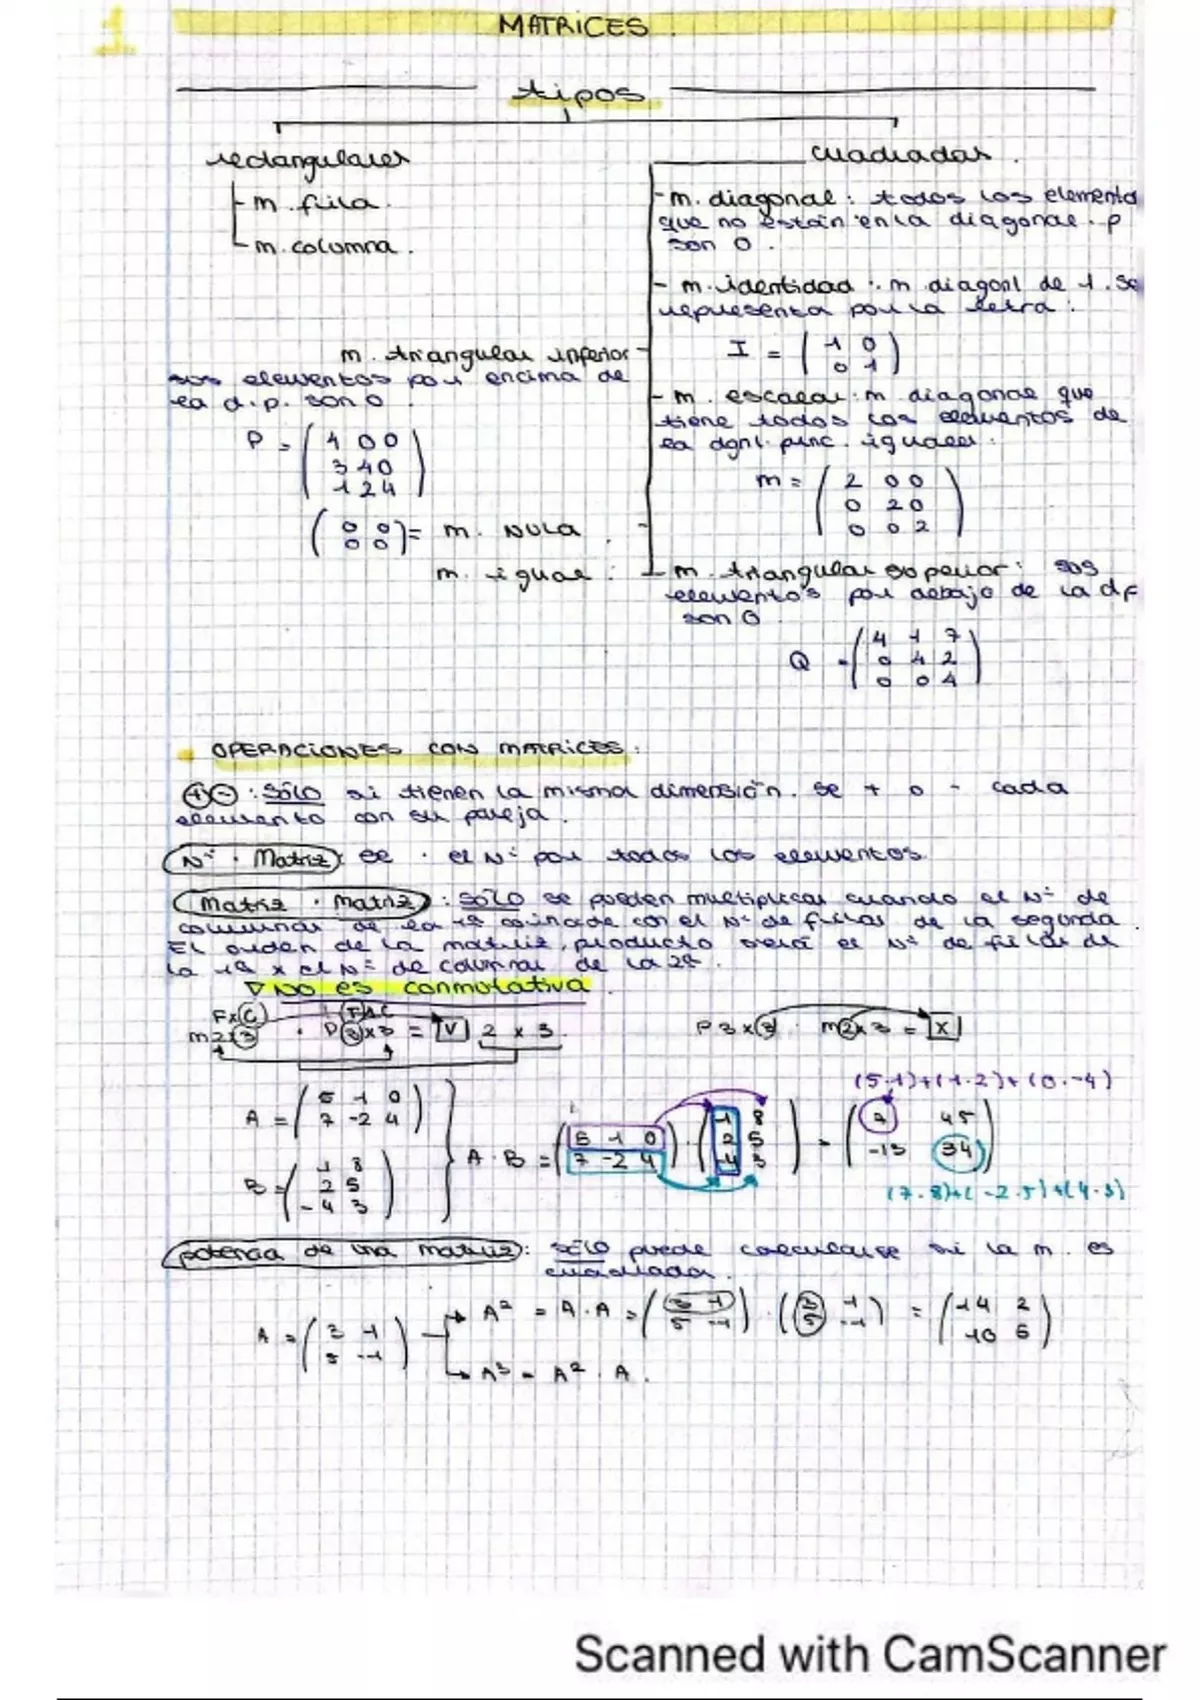 1
MATRICES.
tipos
rectangulares
- m. fila.
- m. columna.
cuadradas.
- m. diagonal: todos los elemento
que no están en la diagonal. p
son 0.
- m. identidad: m diagonl de 1. Se
representa por la letra:
I = (1 0
0 1)
m. triangular inferior
sus elementos por encima de
la d.p. son 0.
P = (4 0 0
3 4 0
1 2 4)
(0 0
0 0) = m. NULA.
m. igual:
- m. escalar: m. diagonal que
tiene todos los elementos de
la dgnl. princ. iguales.
m = (2 0 0
0 2 0
0 0 2)
- m. triangular superior: sus
elementos por debajo de la d.p
son 0.
Q = (4 1 7
0 4 2
0 0 4)
OPERACIONES CON MATRICES:
+ - : SÓLO si tienen la misma dimensión. se + o - cada
elemento con su pareja.
Nº · Matriz: se · el Nº por todos los elementos.
Matriz · Matriz: SÓLO se pueden multiplicar cuando el Nº de
columnas de la 1ª coincide con el Nº de filas de la segunda.
El orden de la matriz, producto será el Nº de filas de
la 1ª x el Nº de columnas de la 2ª.
▽ NO es conmutativa.
FxC FxC
m2x3 · P3x3 = V 2 x 3.
P3x3 · m2x3 = X
(5·1)+(1·2)+(0·-4)
A = (5 1 0
7 -2 4)
B = (1 8
2 5
-4 3)
A · B = (5 1 0
7 -2 4) · (1 8
2 5
-4 3) = (7 45
-13 34)
(7·8)+(-2·5)+(4·3)
potencia de una matriz: SÓLO puede calcularse si la m. es
cuadrada.
A = (3 1
5 -1)
A² = A · A = (3 1
5 -1) · (3 1
5 -1) = (14 2
10 6)
A³ = A² · A.
Scanned with CamScanner